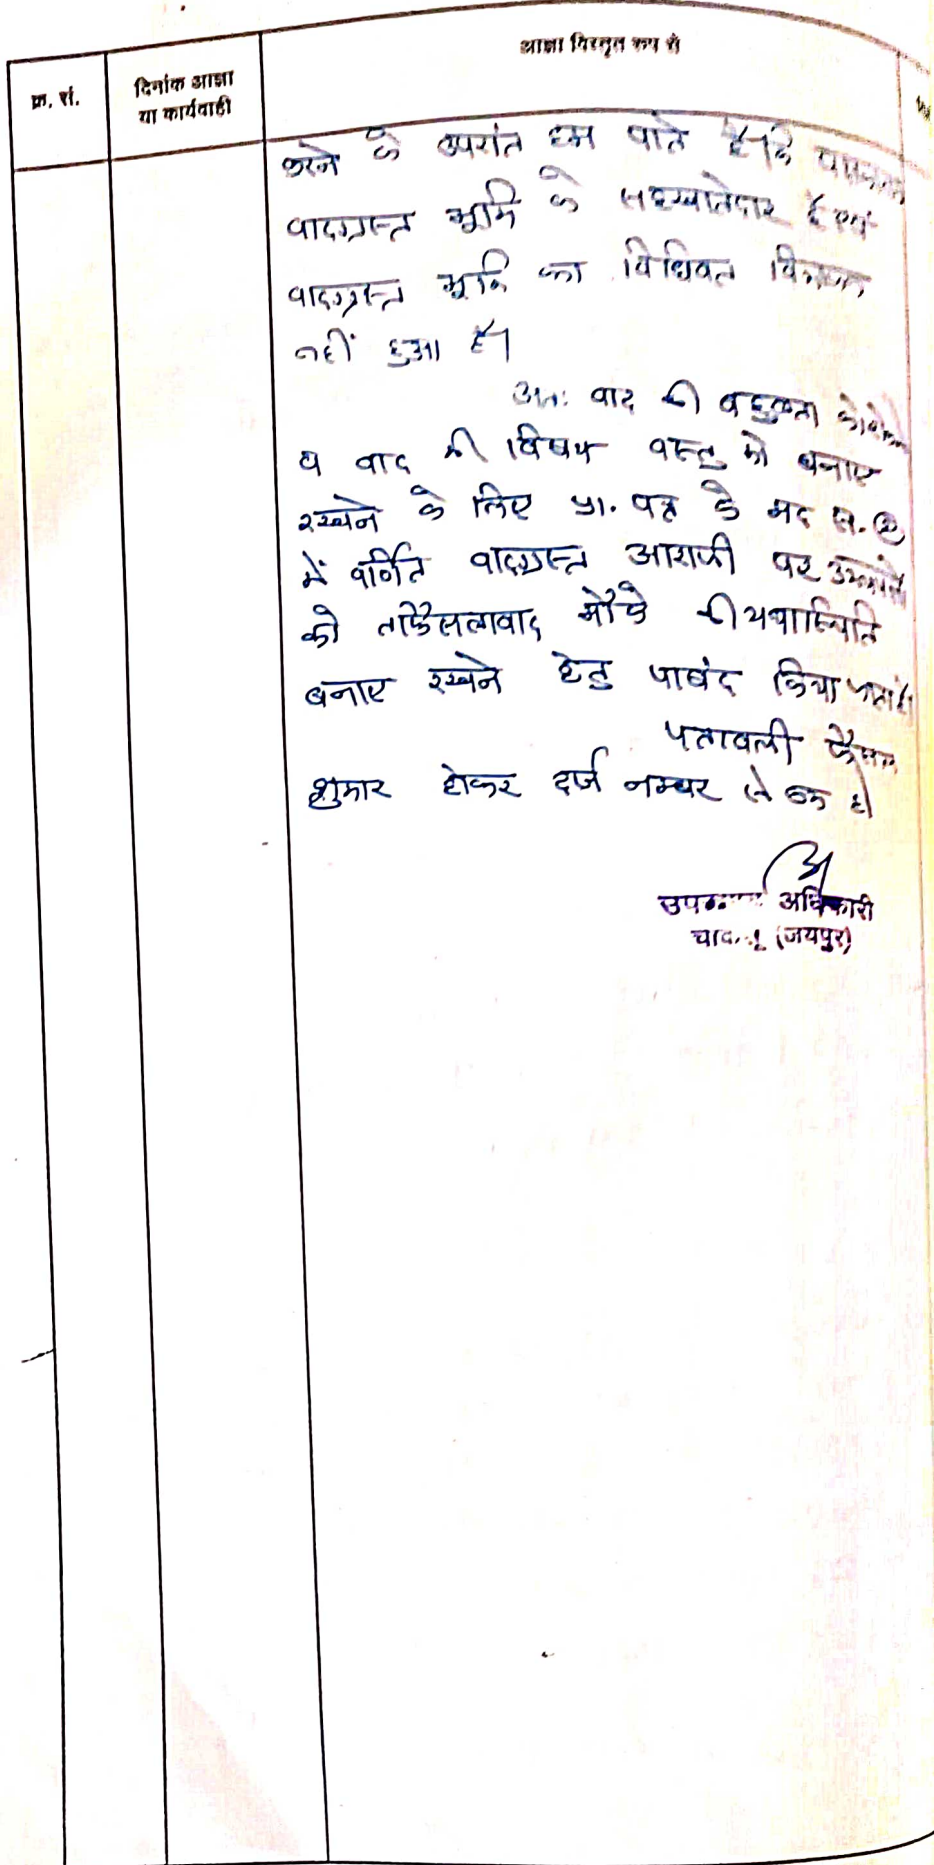 आज्ञा विस्तृत रूप से
क्र. सं.
दिनांक आज्ञा
या कार्यवाही
करने के उपरांत हम पाते है कि
वादग्रस्त भूमि के सहखातेदार है एवं
वादग्रस्त भूमि का विधिवत विभाजन
नहीं हुआ है।
अतः वाद की बहुलता को रोकने
व वाद की विषय वस्तु को बनाए
रखने के लिए प्रा. पत्र के मद स. 2
में वर्णित वादग्रस्त आराजी पर उभयपक्षों
को ताफैसलावाद मौके की यथास्थिति
बनाए रखने हेतु पाबंद किया जाता है।
पत्रावली फैसल
शुमार होकर दर्ज नम्बर से कम हो
उपखण्ड अधिकारी
चाकसू (जयपुर)